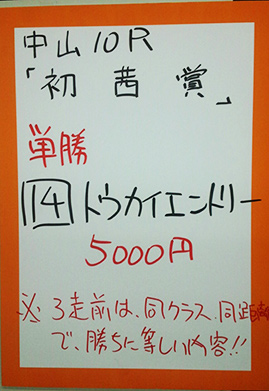 中山10R
「初茜賞」
単勝
14 トウカイエンドリー
5000円
※3走前は、同クラス、同距離
で、勝ちに等しい内容!!